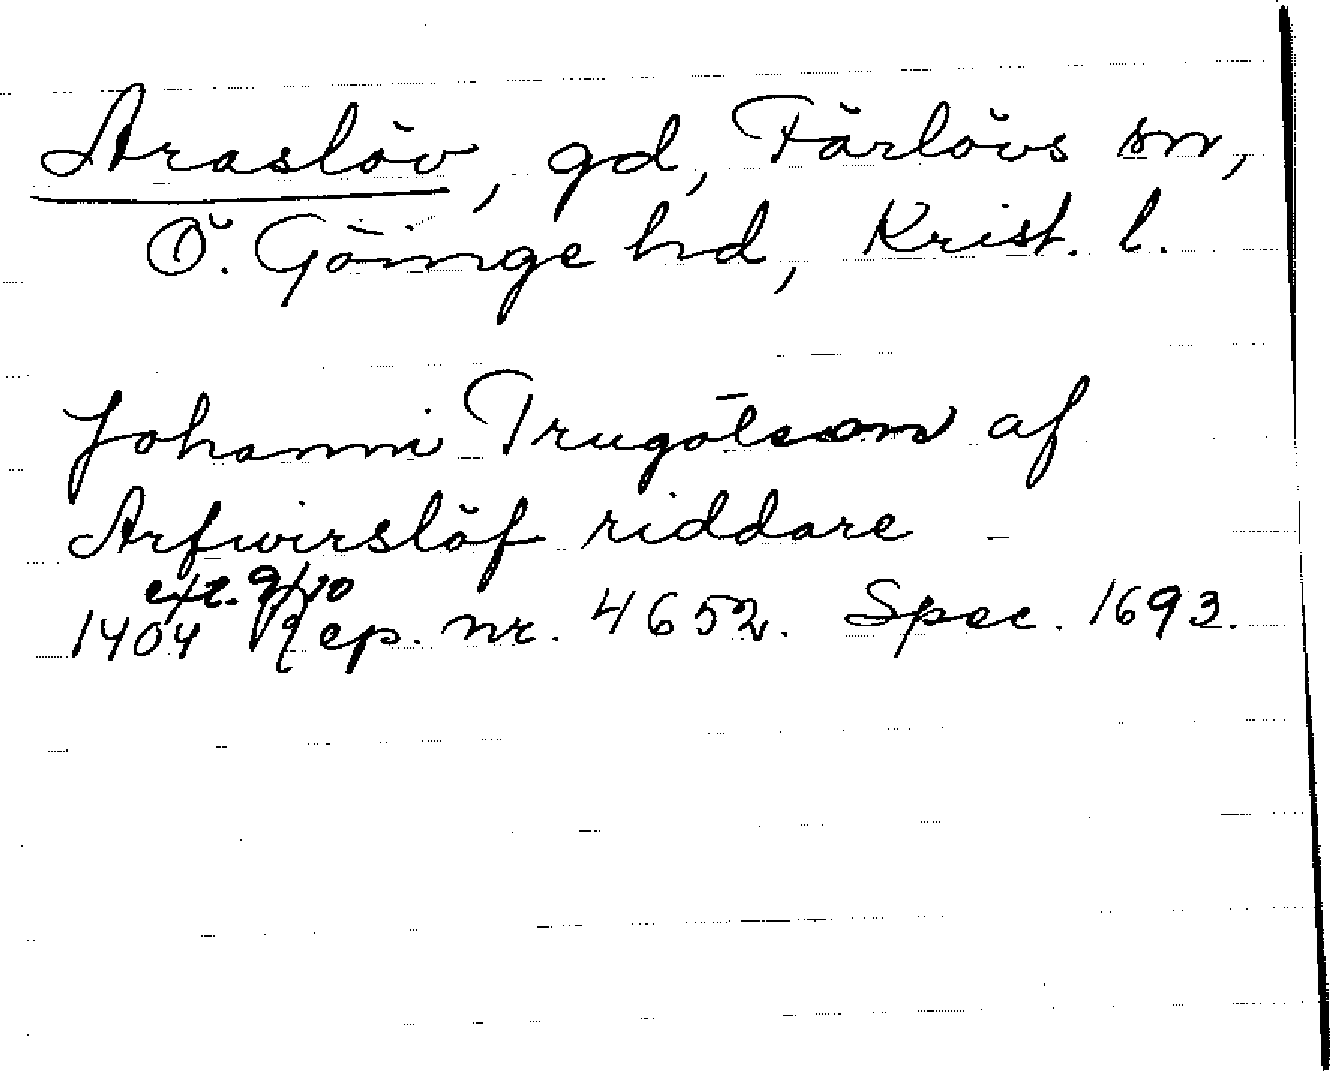 Araslöv, gd, Färlövs sn,
Ö. Göinge hd, Krist. l.
Johanni Trugotsson af
Arfwirslöf riddare
eft. 9/10
1404 Rep. nr. 4652. Spec. 1693.